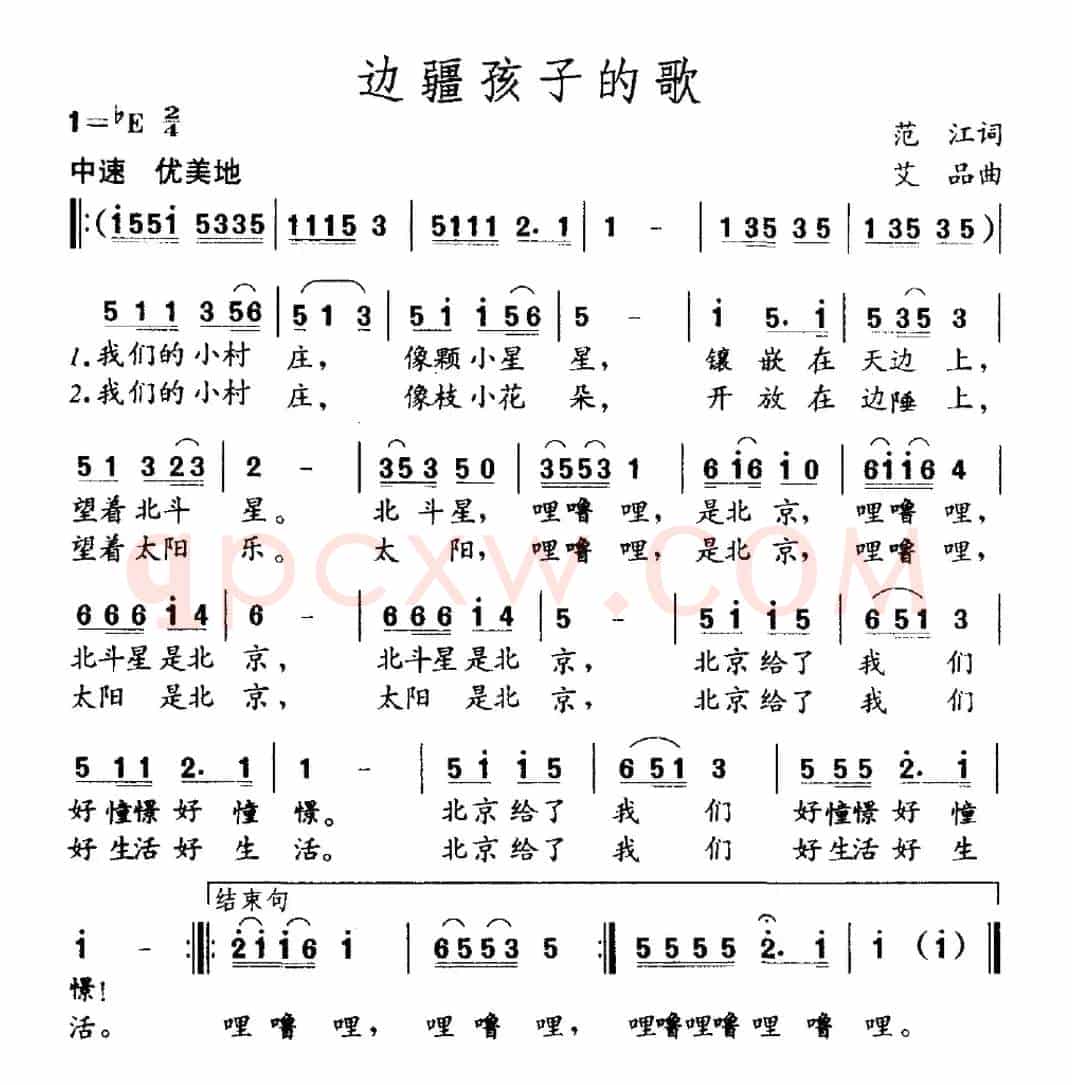 边疆孩子的歌
1=♭E 2/4
范 江词
中速 优美地
艾 品曲
‖:(i55i 5335 | 1115 3 | 5111 2. 1 | 1 - | 1 35 35 | 1 35 35)|
5 1 1 3 56 | 5 1 3 | 5 i i 56 | 5 - | i 5. i | 5 35 3 |
1.我们的小村 庄, 像颗小星 星, 镶 嵌在 天边上,
2.我们的小村 庄, 像枝小花 朵, 开 放在 边陲上,
51 3 23 | 2 - | 353 50 | 3553 1 | 6i6 i0 | 6ii6 4 |
望着北斗 星。 北 斗星, 哩噜 哩, 是北京, 哩噜哩,
望着太阳 乐。 太 阳, 哩噜 哩, 是北京, 哩噜哩,
qpcxw.COM
666 i4 | 6 - | 666 i4 | 5 - | 5i i5 | 651 3 |
北斗星是北 京, 北斗星是北 京, 北京给了 我 们
太阳 是北 京, 太阳 是北 京, 北京给了 我 们
5 11 2. 1 | 1 - | 5i i5 | 651 3 | 5 55 2. i |
好憧憬好 憧 憬。 北京给了 我 们 好憧憬好 憧
好生活好 生 活。 北京给了 我 们 好生活好 生
结束句
i - :‖: 2ii6 i | 6553 5 :‖ 5555 2. i | i (i) ‖
憬!
活。 哩 噜 哩, 哩 噜 哩, 哩噜哩噜哩 噜 哩。